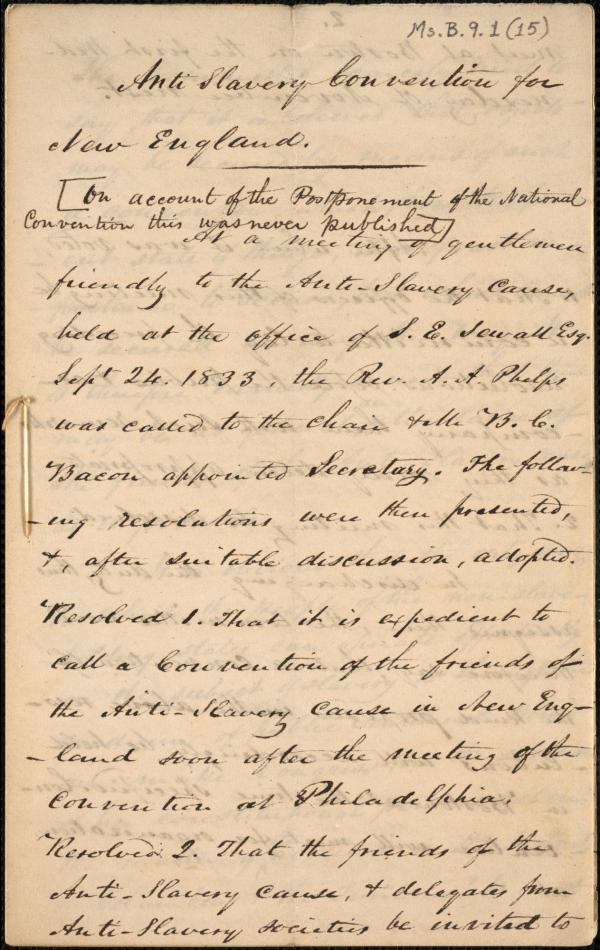 Ms. B. 9. 1 (15)
Anti Slavery Convention for
New England.
[On account of the Postponement of the National
Convention this was never published]
At a meeting of gentlemen
friendly to the Anti-Slavery Cause,
held at the office of S. E. Sewall Esq.
Sept 24. 1833, the Rev. A. A. Phelps
was called to the chair & Mr B. C.
Bacon appointed Secretary. The follow-
-ing resolutions were then presented,
&, after suitable discussion, adopted.
Resolved 1. That it is expedient to
call a Convention of the friends of
the Anti-Slavery Cause in New Eng-
-land soon after the meeting of the
Convention at Philadelphia.
Resolved 2. That the friends of the
Anti-Slavery cause, & delegates from
Anti-Slavery societies be invited to